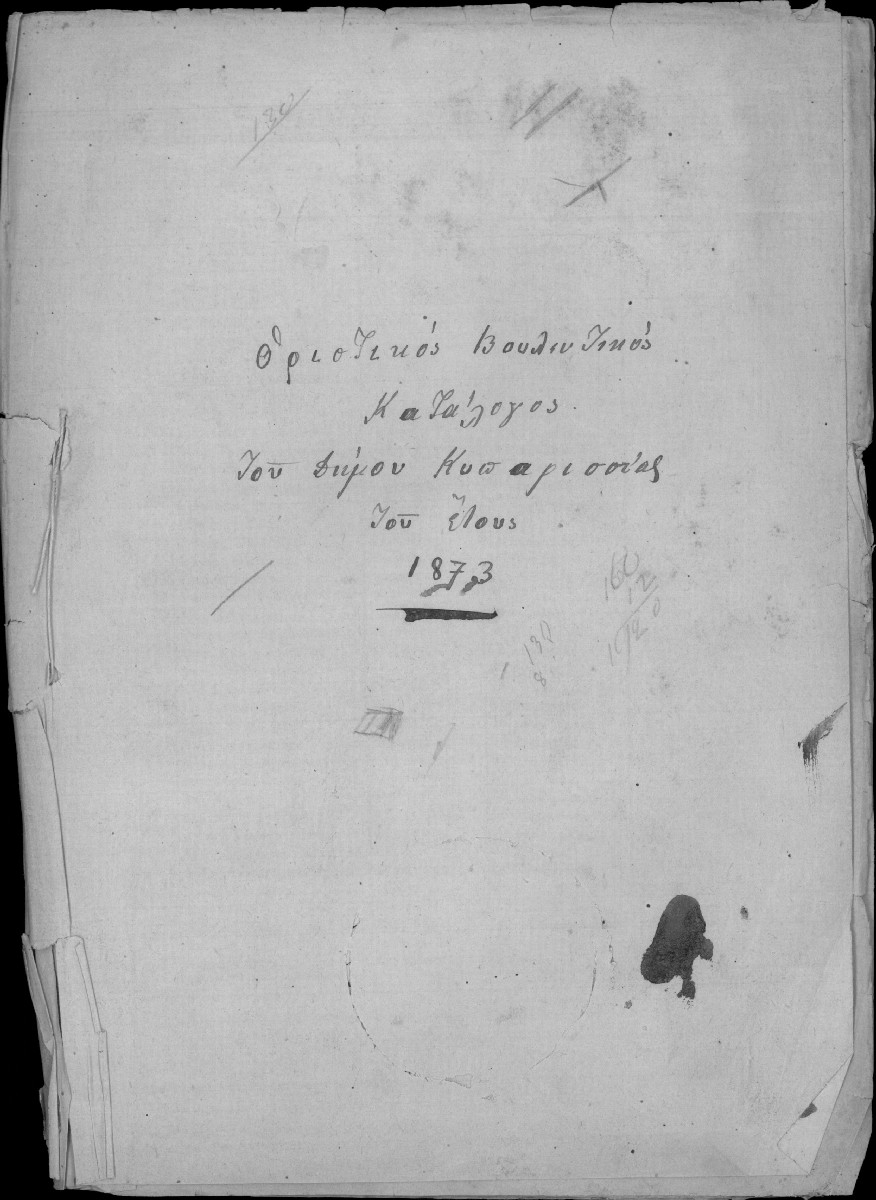 180
Ὁριστικός Βουλευτικός
Κατάλογος
τοῦ Δήμου Κυπαρισσίας
τοῦ ἔτους
1873
160
12
130
8